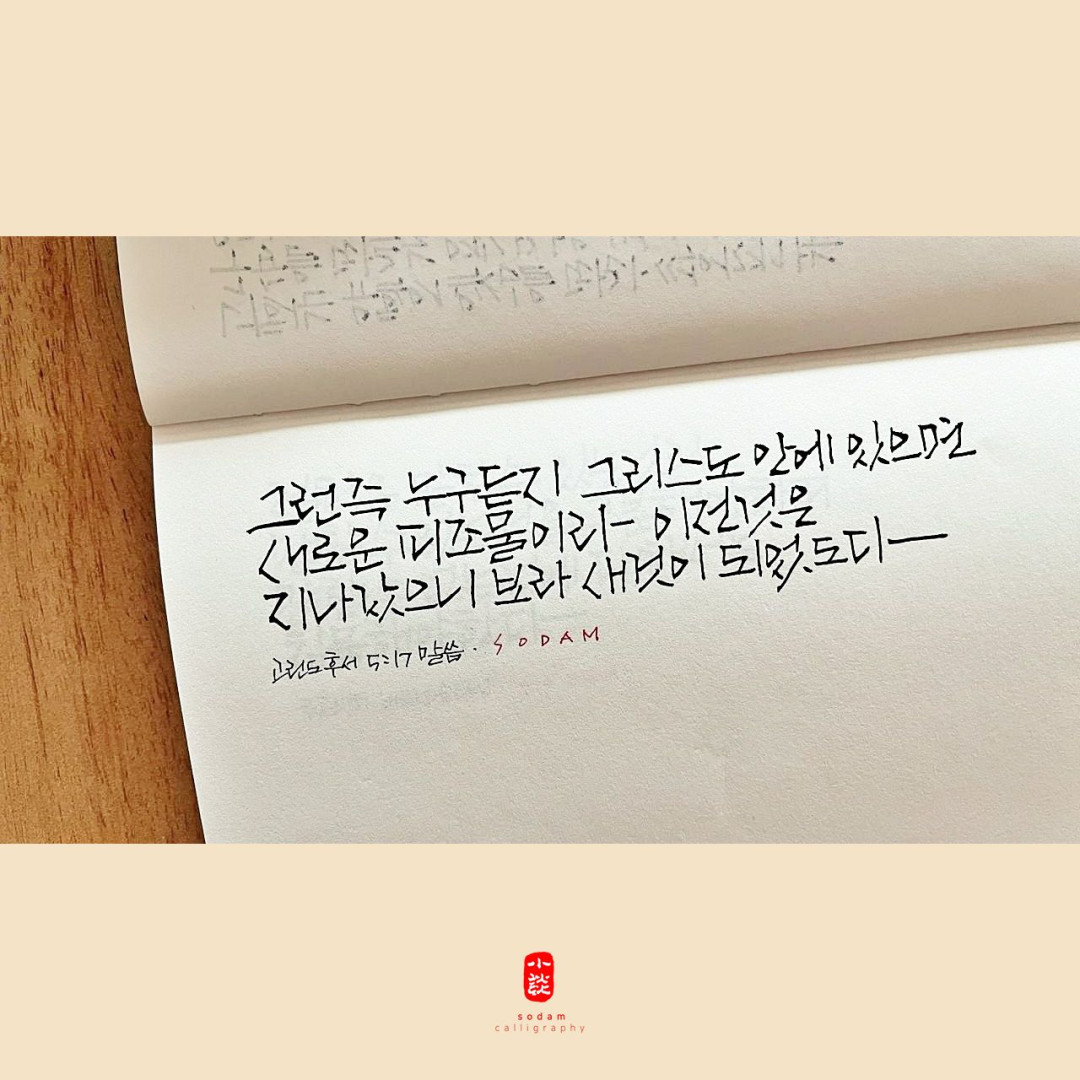 그런즉 누구든지 그리스도 안에 있으면
새로운 피조물이라 이전것은
지나갔으니 보라 새것이 되었도다
고린도후서 5:17 말씀. SODAM
小談
sodam
calligraphy